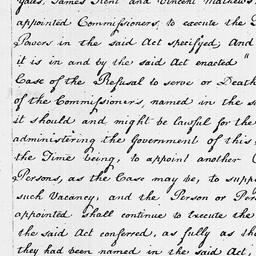 Yates, James Kent and Vincent Mathews
appointed Commissioners, to execute the
Powers in the said Act specifyed, And
it is in and by the said Act enacted "
Case of the Refusal to serve or Death
of the Commissioners, named in the s
it should and might be lawful for the
administering the Government of this
the Time being, to appoint another
Persons, as the Case may be, to supp
such Vacancy, and the Person or Per
appointed shall continue to execute the
the said Act conferred, as fully as th
they had been named in the said Act,